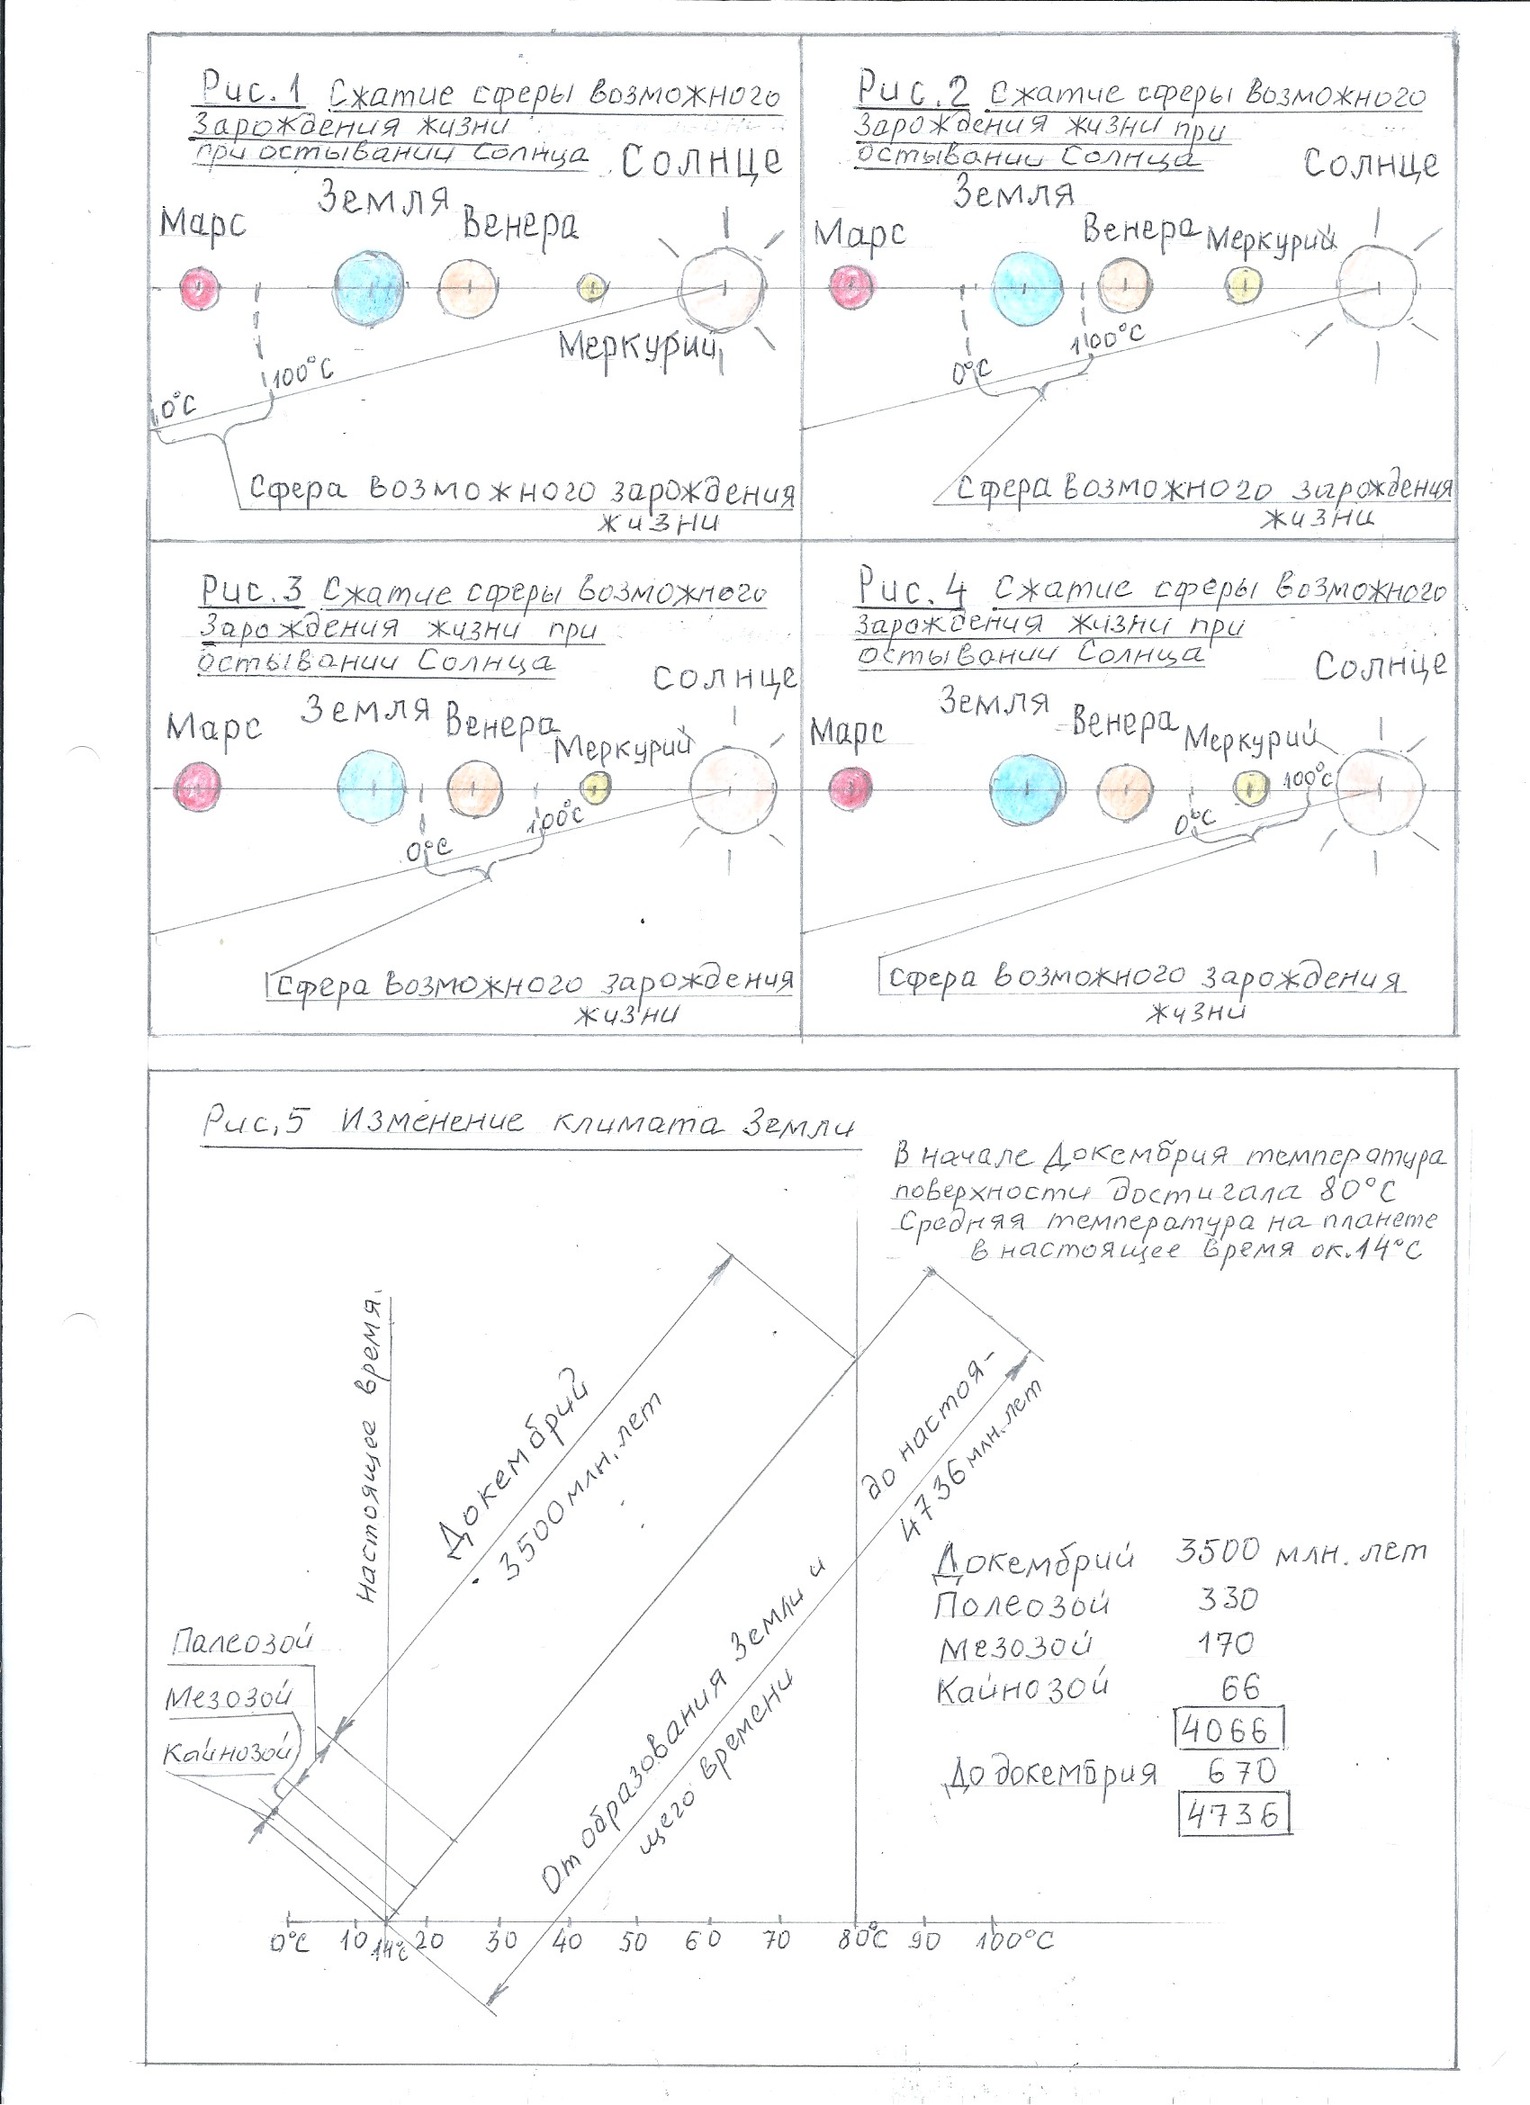 Рис.1 Сжатие сферы возможного
зарождения жизни
при остывании Солнца
Солнце
Земля
Марс
Венера
Меркурий
100°С
0°С
Сфера возможного зарождения
жизни
Рис.2 Сжатие сферы возможного
зарождения жизни при
остывании Солнца
Солнце
Земля
Марс
Венера
Меркурий
100°С
0°С
Сфера возможного зарождения
жизни
Рис.3 Сжатие сферы возможного
зарождения жизни при
остывании Солнца
Солнце
Земля
Марс
Венера
Меркурий
100°С
0°С
Сфера возможного зарождения
жизни
Рис.4 Сжатие сферы возможного
зарождения жизни при
остывании Солнца
Солнце
Земля
Марс
Венера
Меркурий
100°С
0°С
Сфера возможного зарождения
жизни
Рис.5 Изменение климата Земли
В начале Докембрия температура
поверхности достигала 80°С
Средняя температура на планете
в настоящее время ок.14°С
Настоящее время.
Докембрий
3500 млн. лет
От образования Земли и до настоя-
щего времени 4736 млн. лет
Палеозой
Мезозой
Кайнозой
Докембрий 3500 млн. лет
Полеозой 330
Мезозой 170
Кайнозой 66
4066
До докембрия 670
4736
0°С 10 14°С 20 30 40 50 60 70 80°С 90 100°С